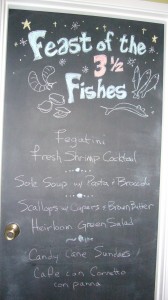 Feast of the
3 ½
Fishes
Fegatini
Fresh Shrimp Cocktail
Sole Soup w/ Pasta & Broccoli
Scallops w/ Capers & Brown Butter
Heirloom Green Salad
Candy Cane Sundaes /
Cafe con Cornetto
con panna